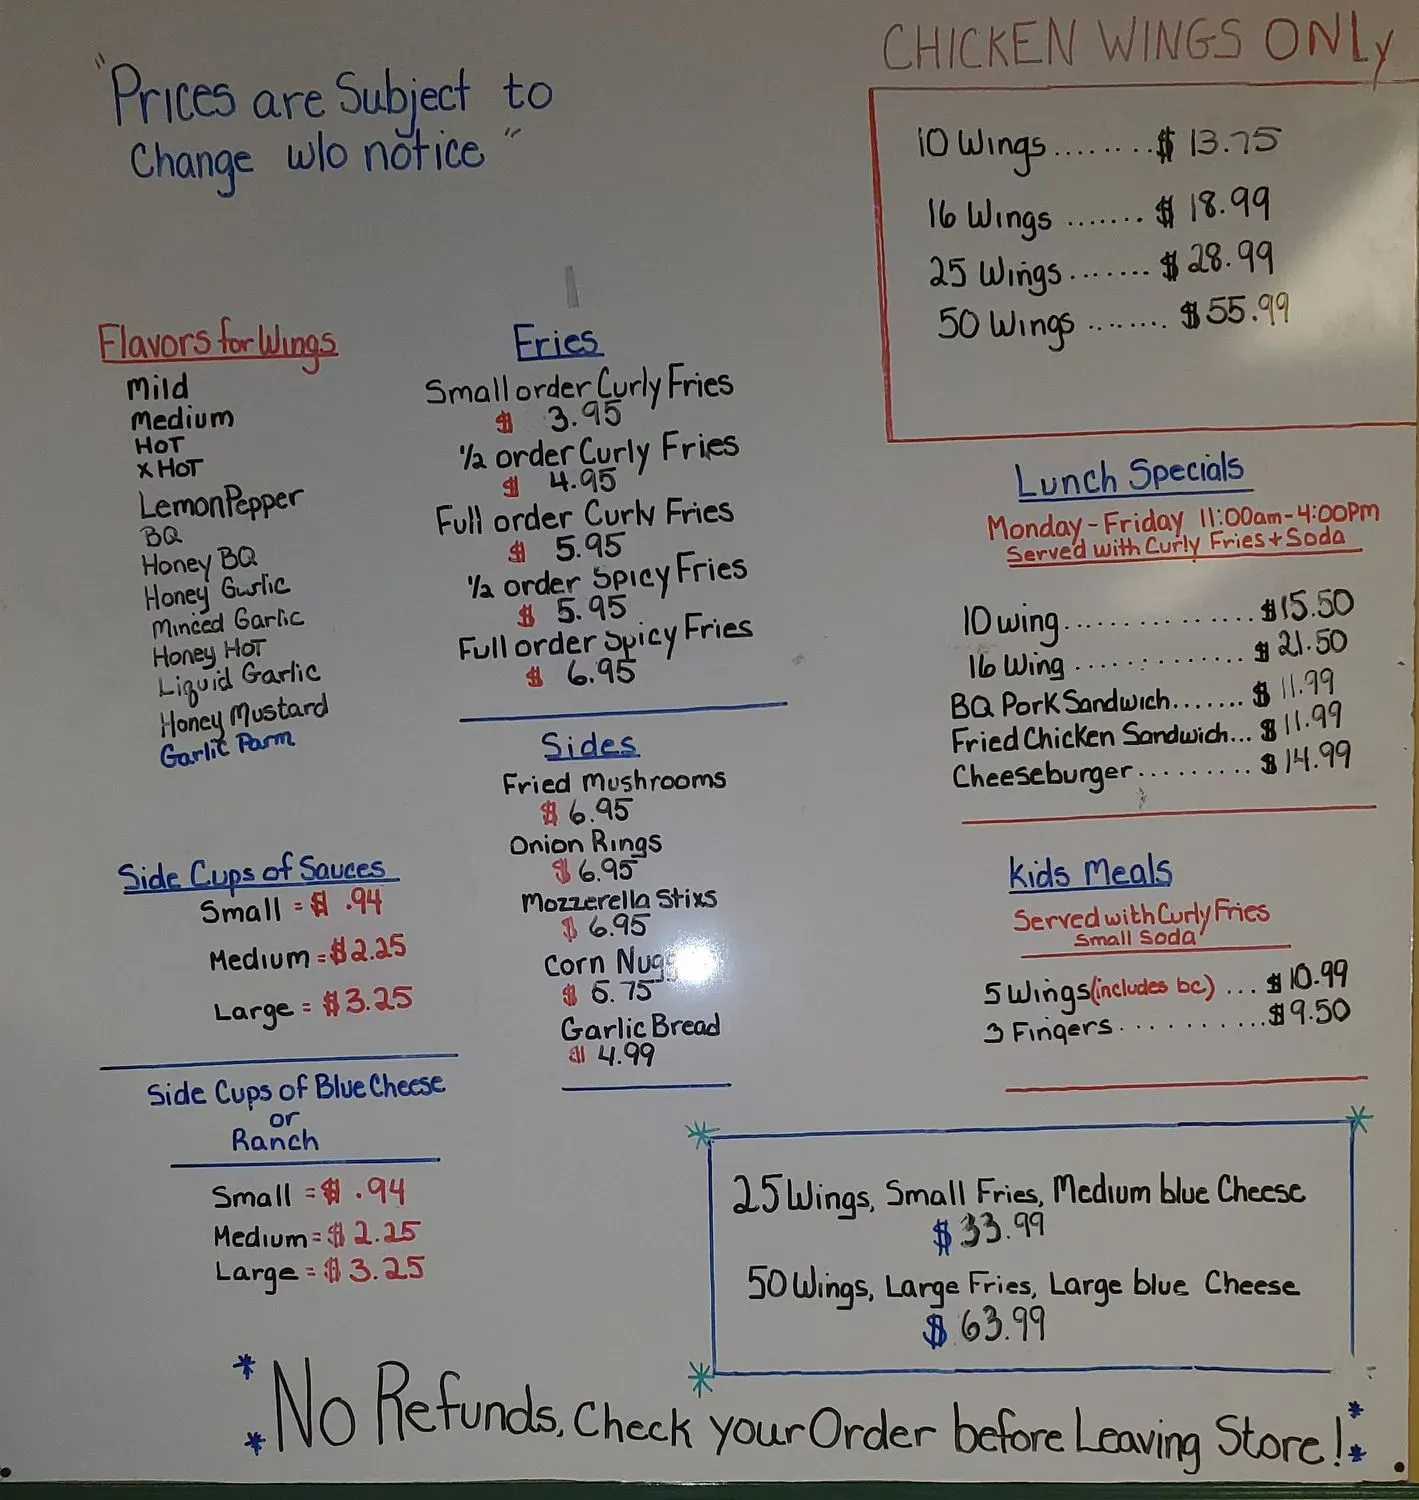 "Prices are Subject to
Change w/o notice"
CHICKEN WINGS ONLY
10 Wings ........ $ 13.75
16 Wings ....... $ 18.99
25 Wings ....... $ 28.99
50 Wings ........ $ 55.99
Flavors for Wings
Mild
Medium
HOT
X HOT
Lemon Pepper
BQ
Honey BQ
Honey Garlic
Minced Garlic
Honey HOT
Liquid Garlic
Honey Mustard
Garlic Parm
Fries
Small order Curly Fries
$ 3.95
1/2 order Curly Fries
$ 4.95
Full order Curly Fries
$ 5.95
1/2 order Spicy Fries
$ 5.95
Full order Spicy Fries
$ 6.95
Sides
Fried Mushrooms
$ 6.95
Onion Rings
$ 6.95
Mozzerella Stixs
$ 6.95
Corn
$ 6.75
Garlic Bread
$ 4.99
Lunch Specials
Monday - Friday 11:00am - 4:00pm
Served with Curly Fries + Soda
10 wing .............. $15.50
16 Wing ............. $ 21.50
BQ Pork Sandwich ....... $ 11.99
Fried Chicken Sandwich... $ 11.99
Cheeseburger ......... $ 14.99
Kids Meals
Served with Curly Fries
Small Soda
5 Wings (includes bc) ... $ 10.99
3 Fingers ........... $ 9.50
Side Cups of Sauces
Small = $ .94
Medium = $2.25
Large = $3.25
Side Cups of Blue Cheese
or
Ranch
Small = $ .94
Medium = $ 2.25
Large = $ 3.25
25 Wings, Small Fries, Medium blue Cheese
$ 33.99
50 Wings, Large Fries, Large blue Cheese
$ 63.99
* No Refunds, Check your Order before Leaving Store! *